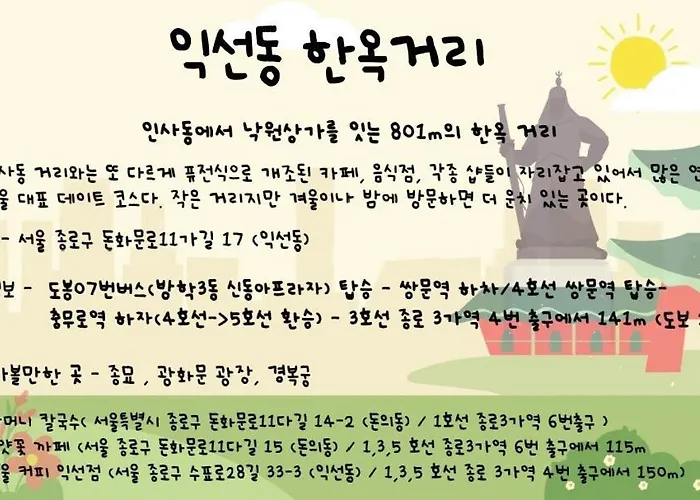 익선동 한옥거리
인사동에서 낙원상가를 잇는 801m의 한옥 거리
사동 거리와는 또 다르게 퓨전식으로 개조된 카페, 음식점, 각종 샵들이 자리잡고 있어서 많은
울 대표 데이트 코스다. 작은 거리지만 겨울이나 밤에 방문하면 더 운치 있는 곳이다.
- 서울 종로구 돈화문로11가길 17 (익선동)
보 - 도봉07번버스(방학3동 신동아프라자) 탑승 - 쌍문역 하차/4호선 쌍문역 탑승-
충무로역 하자(4호선->5호선 환승) - 3호선 종로 3가역 4번 출구에서 141m (도보
가볼만한 곳 - 종묘 , 광화문 광장, 경복궁
머니 칼국수( 서울특별시 종로구 돈화문로11다길 14-2 (돈의동) / 1호선 종로3가역 6번출구 )
꽃 까페 (서울 종로구 돈화문로11다길 15 (돈의동) / 1,3,5 호선 종로3가역 6번 출구에서 115m
울 커피 익선점 (서울 종로구 수표로28길 33-3 (익선동) / 1,3,5 호선 종로 3가역 4번 출구에서 150m)